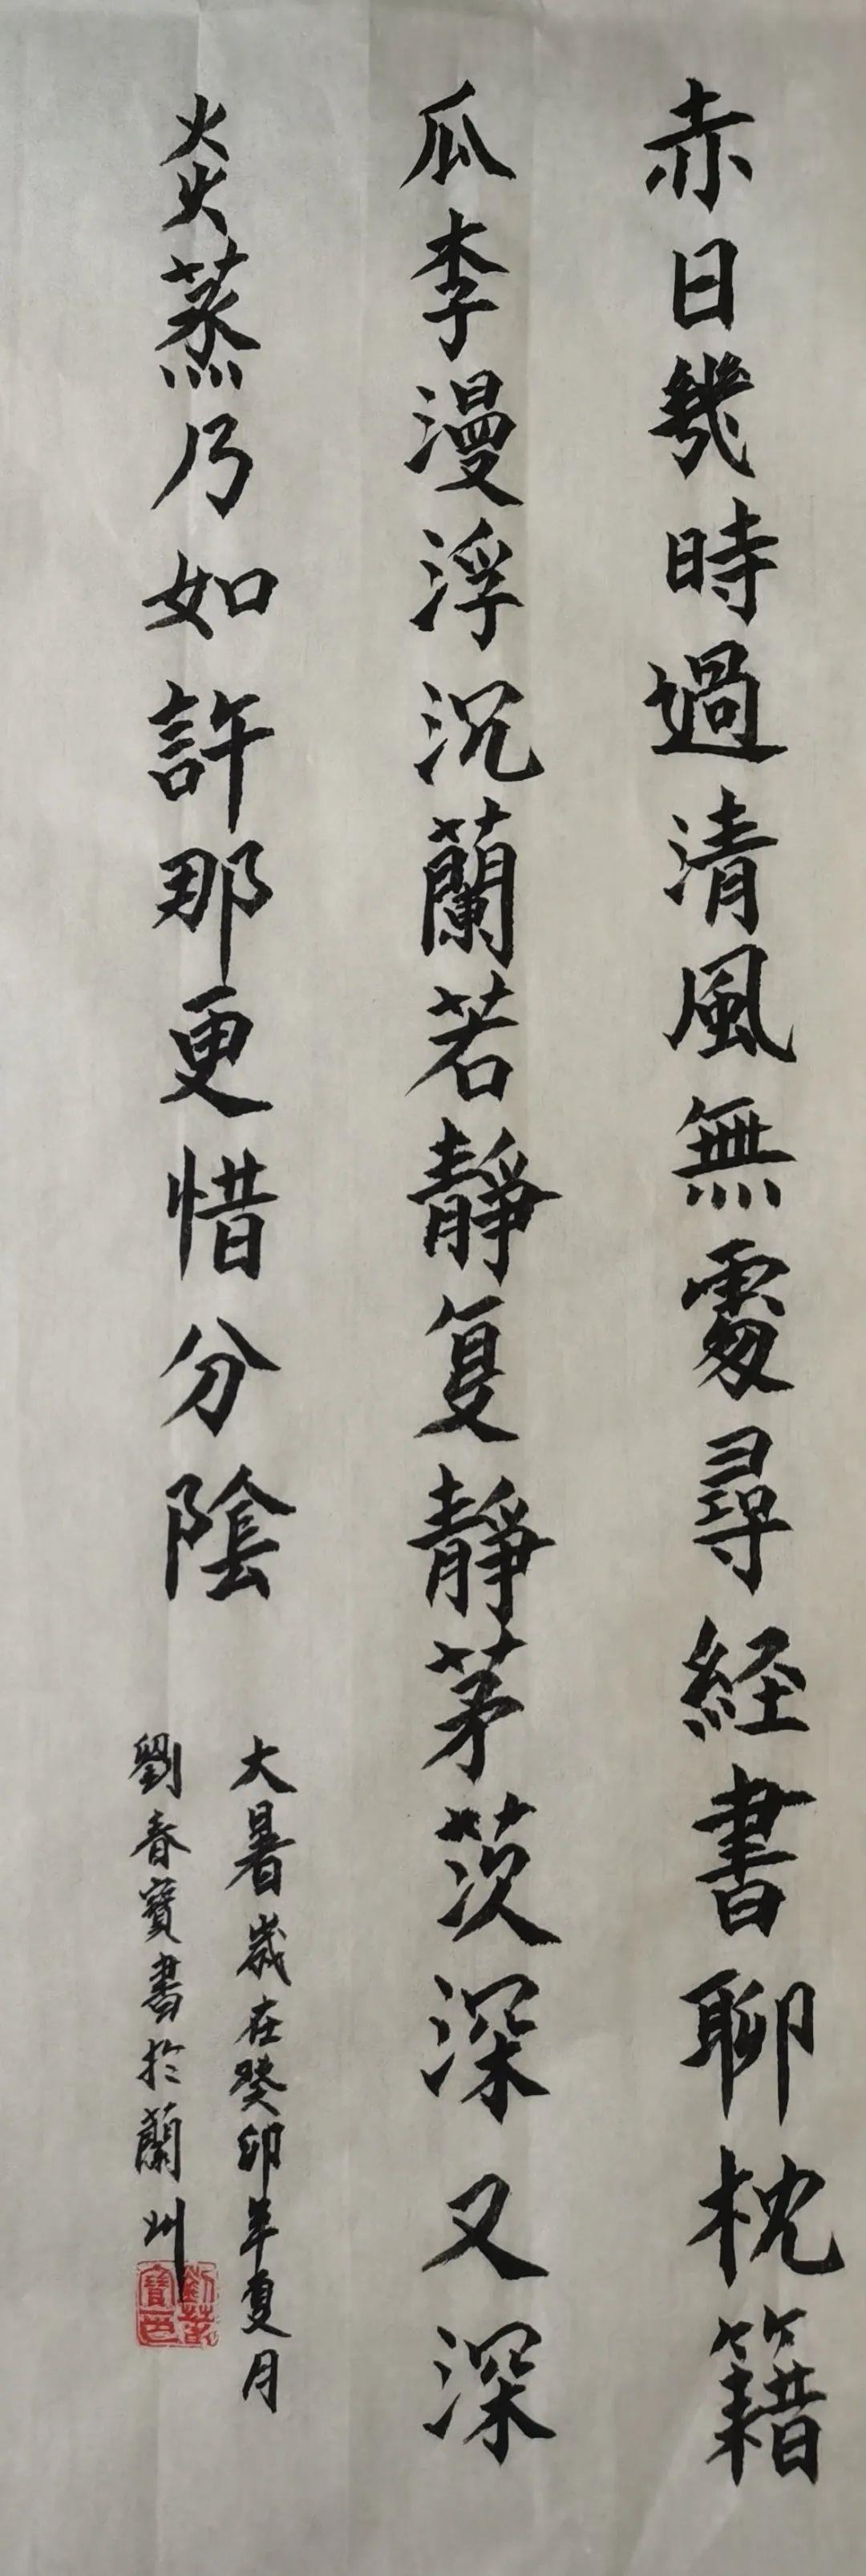 赤日幾時過清風無處尋経書聊枕籍
瓜李漫浮沉蘭若靜复靜茅茨深又深
炎蒸乃如許那更惜分陰
大暑歲在癸卯年夏月
劉春寶書於蘭州